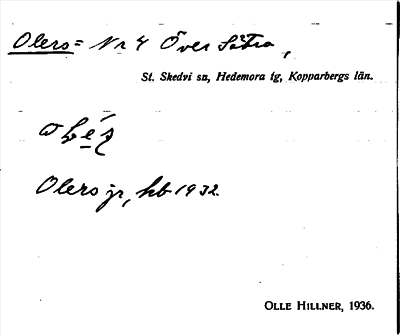 Olers = Nr 4 Över Sätra,
St. Skedvi sn, Hedemora tg, Kopparbergs län.
Olers jr, hb 1932.
OLLE HILLNER, 1936.